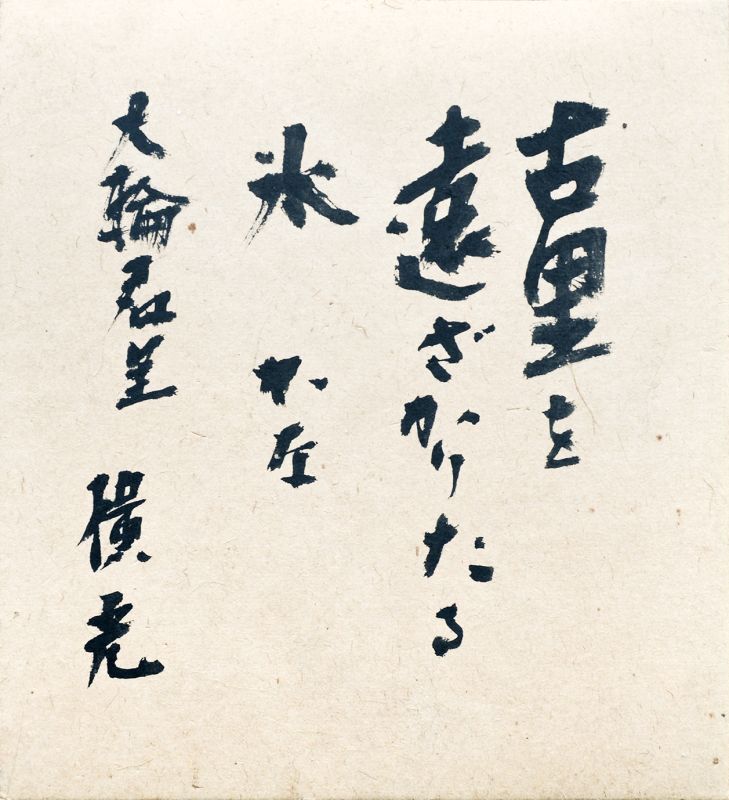 古里を
遠ざかりたる
氷かな
大輪君呈 横光